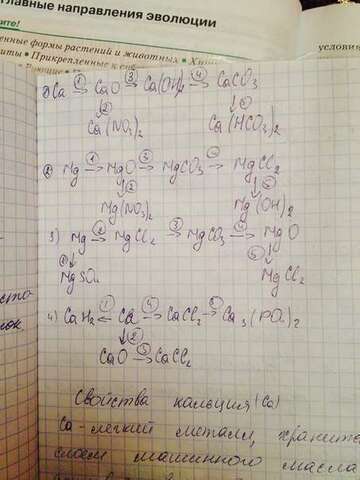 главные направления эволюции
ите!
енные формы растений и животных • Хим
ниты • Прикрепленные к
условие
1) Ca ①→ CaO ③→ Ca(OH)2 ④→ CaCO3
↓② ↓⑤
Ca(NO3)2 Ca(HCO3)2
2) Mg ①→ MgO ③→ MgCO3 → MgCl2
↓② ↓
Mg(NO3)2 Mg(OH)2
3) Mg ②→ MgCl2 ③→ MgCO3 → MgO
↓① ↓
MgSO4 MgCl2
4) CaH2 ←① Ca ④→ CaCl2 → Ca3(PO4)2
↓②
CaO ③→ CaCl2
Свойства кальция (Ca)
Ca - легкий металл, хранить
слоем машинного масла